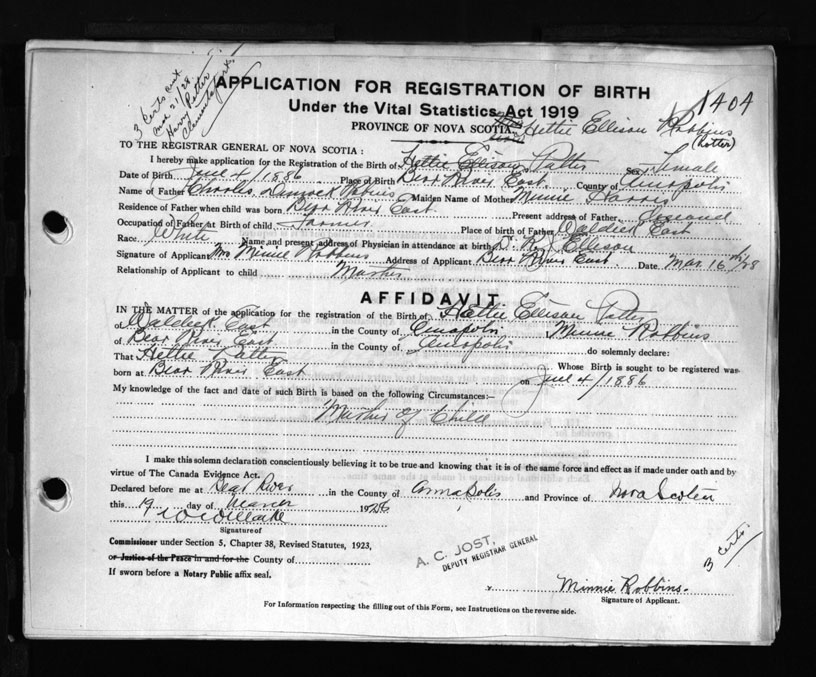 3 certs sent
Harry Potter
Clementsport
APPLICATION FOR REGISTRATION OF BIRTH
1404
Under the Vital Statistics Act 1919
PROVINCE OF NOVA SCOTIA. Hettie Ellison Robbins
(Potter)
TO THE REGISTRAR GENERAL OF NOVA SCOTIA :
I hereby make application for the Registration of the Birth of Hettie Ellison Potter Sex Female
Date of Birth June 4/1886 Place of Birth Bear River East. County of Annapolis
Name of Father Charles Robbins Maiden Name of Mother Minnie Harris
Residence of Father when child was born Bear River East Present address of Father
Occupation of Father at Birth of child Farmer Place of birth of Father Waldick East
Race White Name and present address of Physician in attendance at birth Ellison
Signature of Applicant Mrs Minnie Robbins Address of Applicant Bear River East. Date Mar. 16th/28
Relationship of Applicant to child Mother
AFFIDAVIT
IN THE MATTER of the application for the registration of the Birth of Hettie Ellison Potter
of Waldick East in the County of Annapolis Minnie Robbins
of Bear River East in the County of Annapolis do solemnly declare:
That Hettie Potter Whose Birth is sought to be registered was
born at Bear River East on June 4/1886
My knowledge of the fact and date of such Birth is based on the following Circumstances:—
Mother of Child
I make this solemn declaration conscientiously believing it to be true and knowing that it is of the same force and effect as if made under oath and by
virtue of The Canada Evidence Act.
Declared before me at Bear River in the County of Annapolis and Province of Nova Scotia
this 19 day of March 19
Signature of
Commissioner under Section 5, Chapter 38, Revised Statutes, 1923,
or Justice of the Peace in and for the County of
If sworn before a Notary Public affix seal.
A. C. JOST,
DEPUTY REGISTRAR GENERAL
3 certs.
x Minnie Robbins.
Signature of Applicant.
For Information respecting the filling out of this Form, see Instructions on the reverse side.